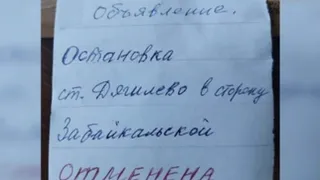 Объявление.
Остановка
ст. Дягилево в сторону
Забайкальской
ОТМЕНЕНА